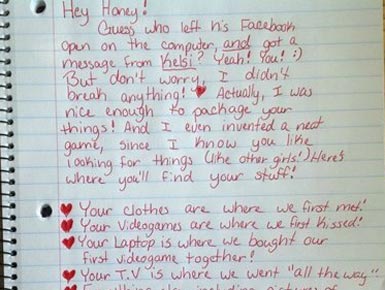 Hey Honey!
Guess who left his Facebook
open on the computer, and got a
message from Kelsi? Yeah! You! :)
But don't worry, I didn't
break anything! ❤ Actually, I was
nice enough to package your
things! And I even invented a neat
game, since I know you like
looking for things (like other girls!) Here's
where you'll find your stuff!
❤ Your clothes are where we first met!
❤ Your videogames are where we first kissed!
❤ Your Laptop is where we bought our
first videogame together!
❤ Your T.V is where we went "all the way"